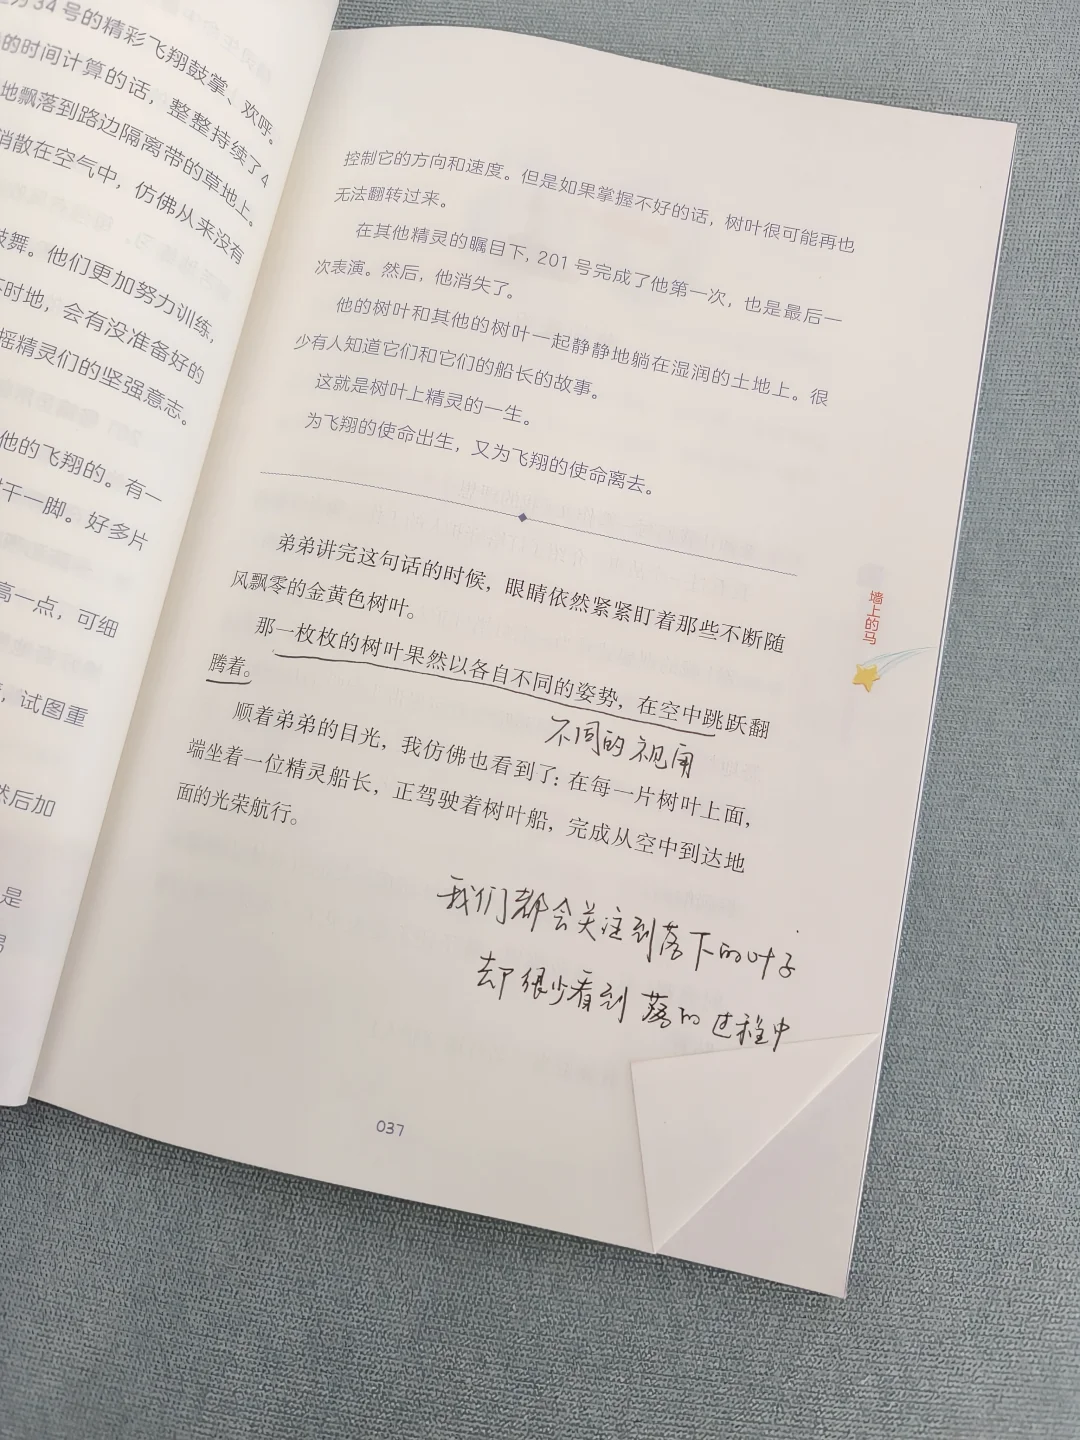 34号的精彩飞翔鼓掌、欢呼。
的时间计算的话，整整持续了4
地飘落到路边隔离带的草地上。
消散在空气中，仿佛从来没有
鼓舞。他们更加努力训练，
不时地，会有没准备好的
摇精灵们的坚强意志。
他的飞翔的。有一
树干一脚。好多片
高一点，可细
，试图重
然后加
是
控制它的方向和速度。但是如果掌握不好的话，树叶很可能再也
无法翻转过来。
在其他精灵的瞩目下，201号完成了他第一次，也是最后一
次表演。然后，他消失了。
他的树叶和其他的树叶一起静静地躺在湿润的土地上。很
少有人知道它们和它们的船长的故事。
这就是树叶上精灵的一生。
为飞翔的使命出生，又为飞翔的使命离去。
弟弟讲完这句话的时候，眼睛依然紧紧盯着那些不断随
风飘零的金黄色树叶。
那一枚枚的树叶果然以各自不同的姿势，在空中跳跃翻
腾着。
不同的视角
顺着弟弟的目光，我仿佛也看到了：在每一片树叶上面，
端坐着一位精灵船长，正驾驶着树叶船，完成从空中到达地
面的光荣航行。
我们都会关注到落下的叶子
却很少看到落的过程中
037
墙上的马